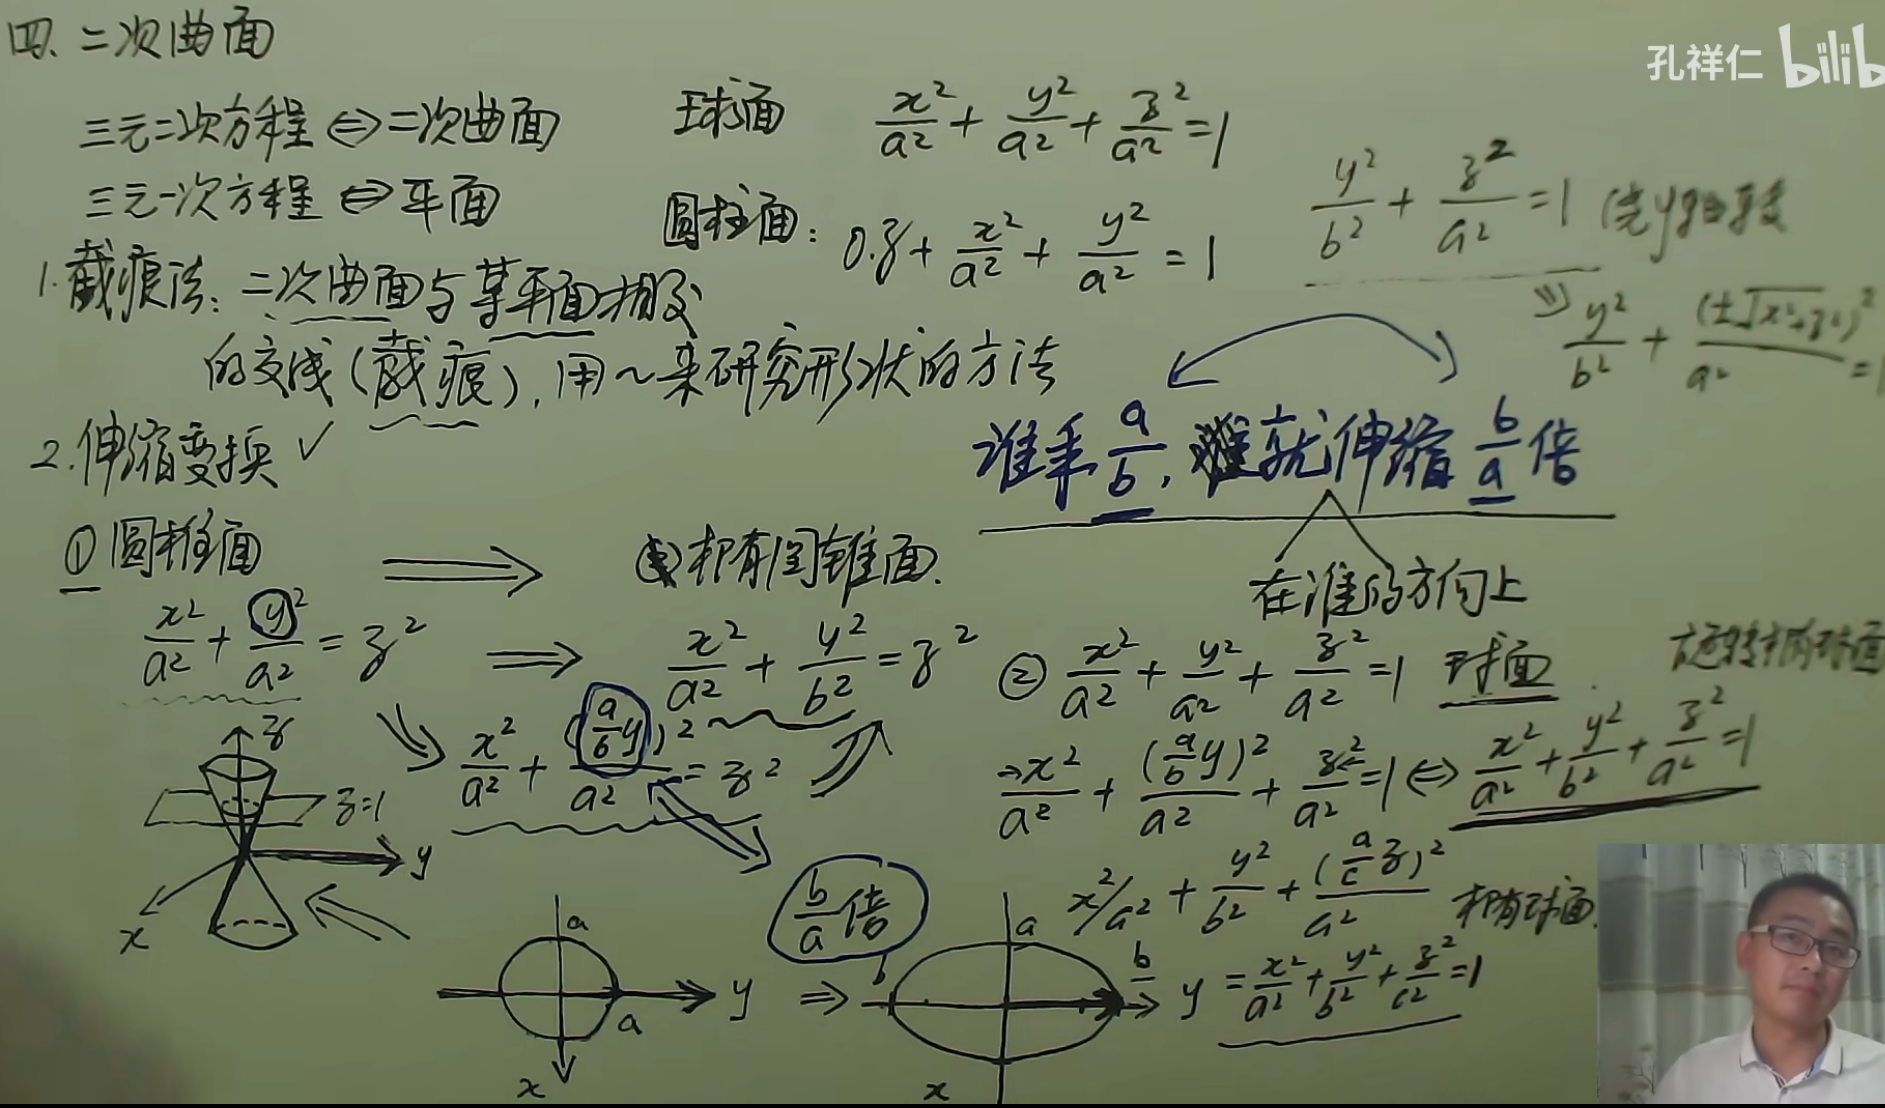 四、二次曲面
孔祥仁 bilib
三元二次方程⇔二次曲面
三元一次方程⇔平面
球面 x²/a² + y²/a² + z²/a² = 1
圆柱面: 0·z + x²/a² + y²/a² = 1
y²/b² + z²/a² = 1 (绕y
⇒ y²/b² + (±√(x²+z²))²/a² = 1
1.截痕法:二次曲面与某平面相交
的交线(截痕),用~来研究形状的方法
2.伸缩变换 ✓
谁乘 a/b,谁就伸缩 b/a 倍
在谁的方向上
① 圆锥面 ⟹ 椭圆锥面.
x²/a² + y²/a² = z² ⟹ x²/a² + y²/b² = z²
x²/a² + (a/b y)²/a² = z²
z
z=1
y
x
b/a 倍
a
a
y
x
⇒
a
b
b
y
x
② x²/a² + y²/a² + z²/a² = 1 球面
旋转椭球面
→ x²/a² + (a/b y)²/a² + z²/a² = 1 ⇔ x²/a² + y²/b² + z²/a² = 1
x²/a² + y²/b² + (a/c z)²/a² 椭球面.
= x²/a² + y²/b² + z²/c² = 1